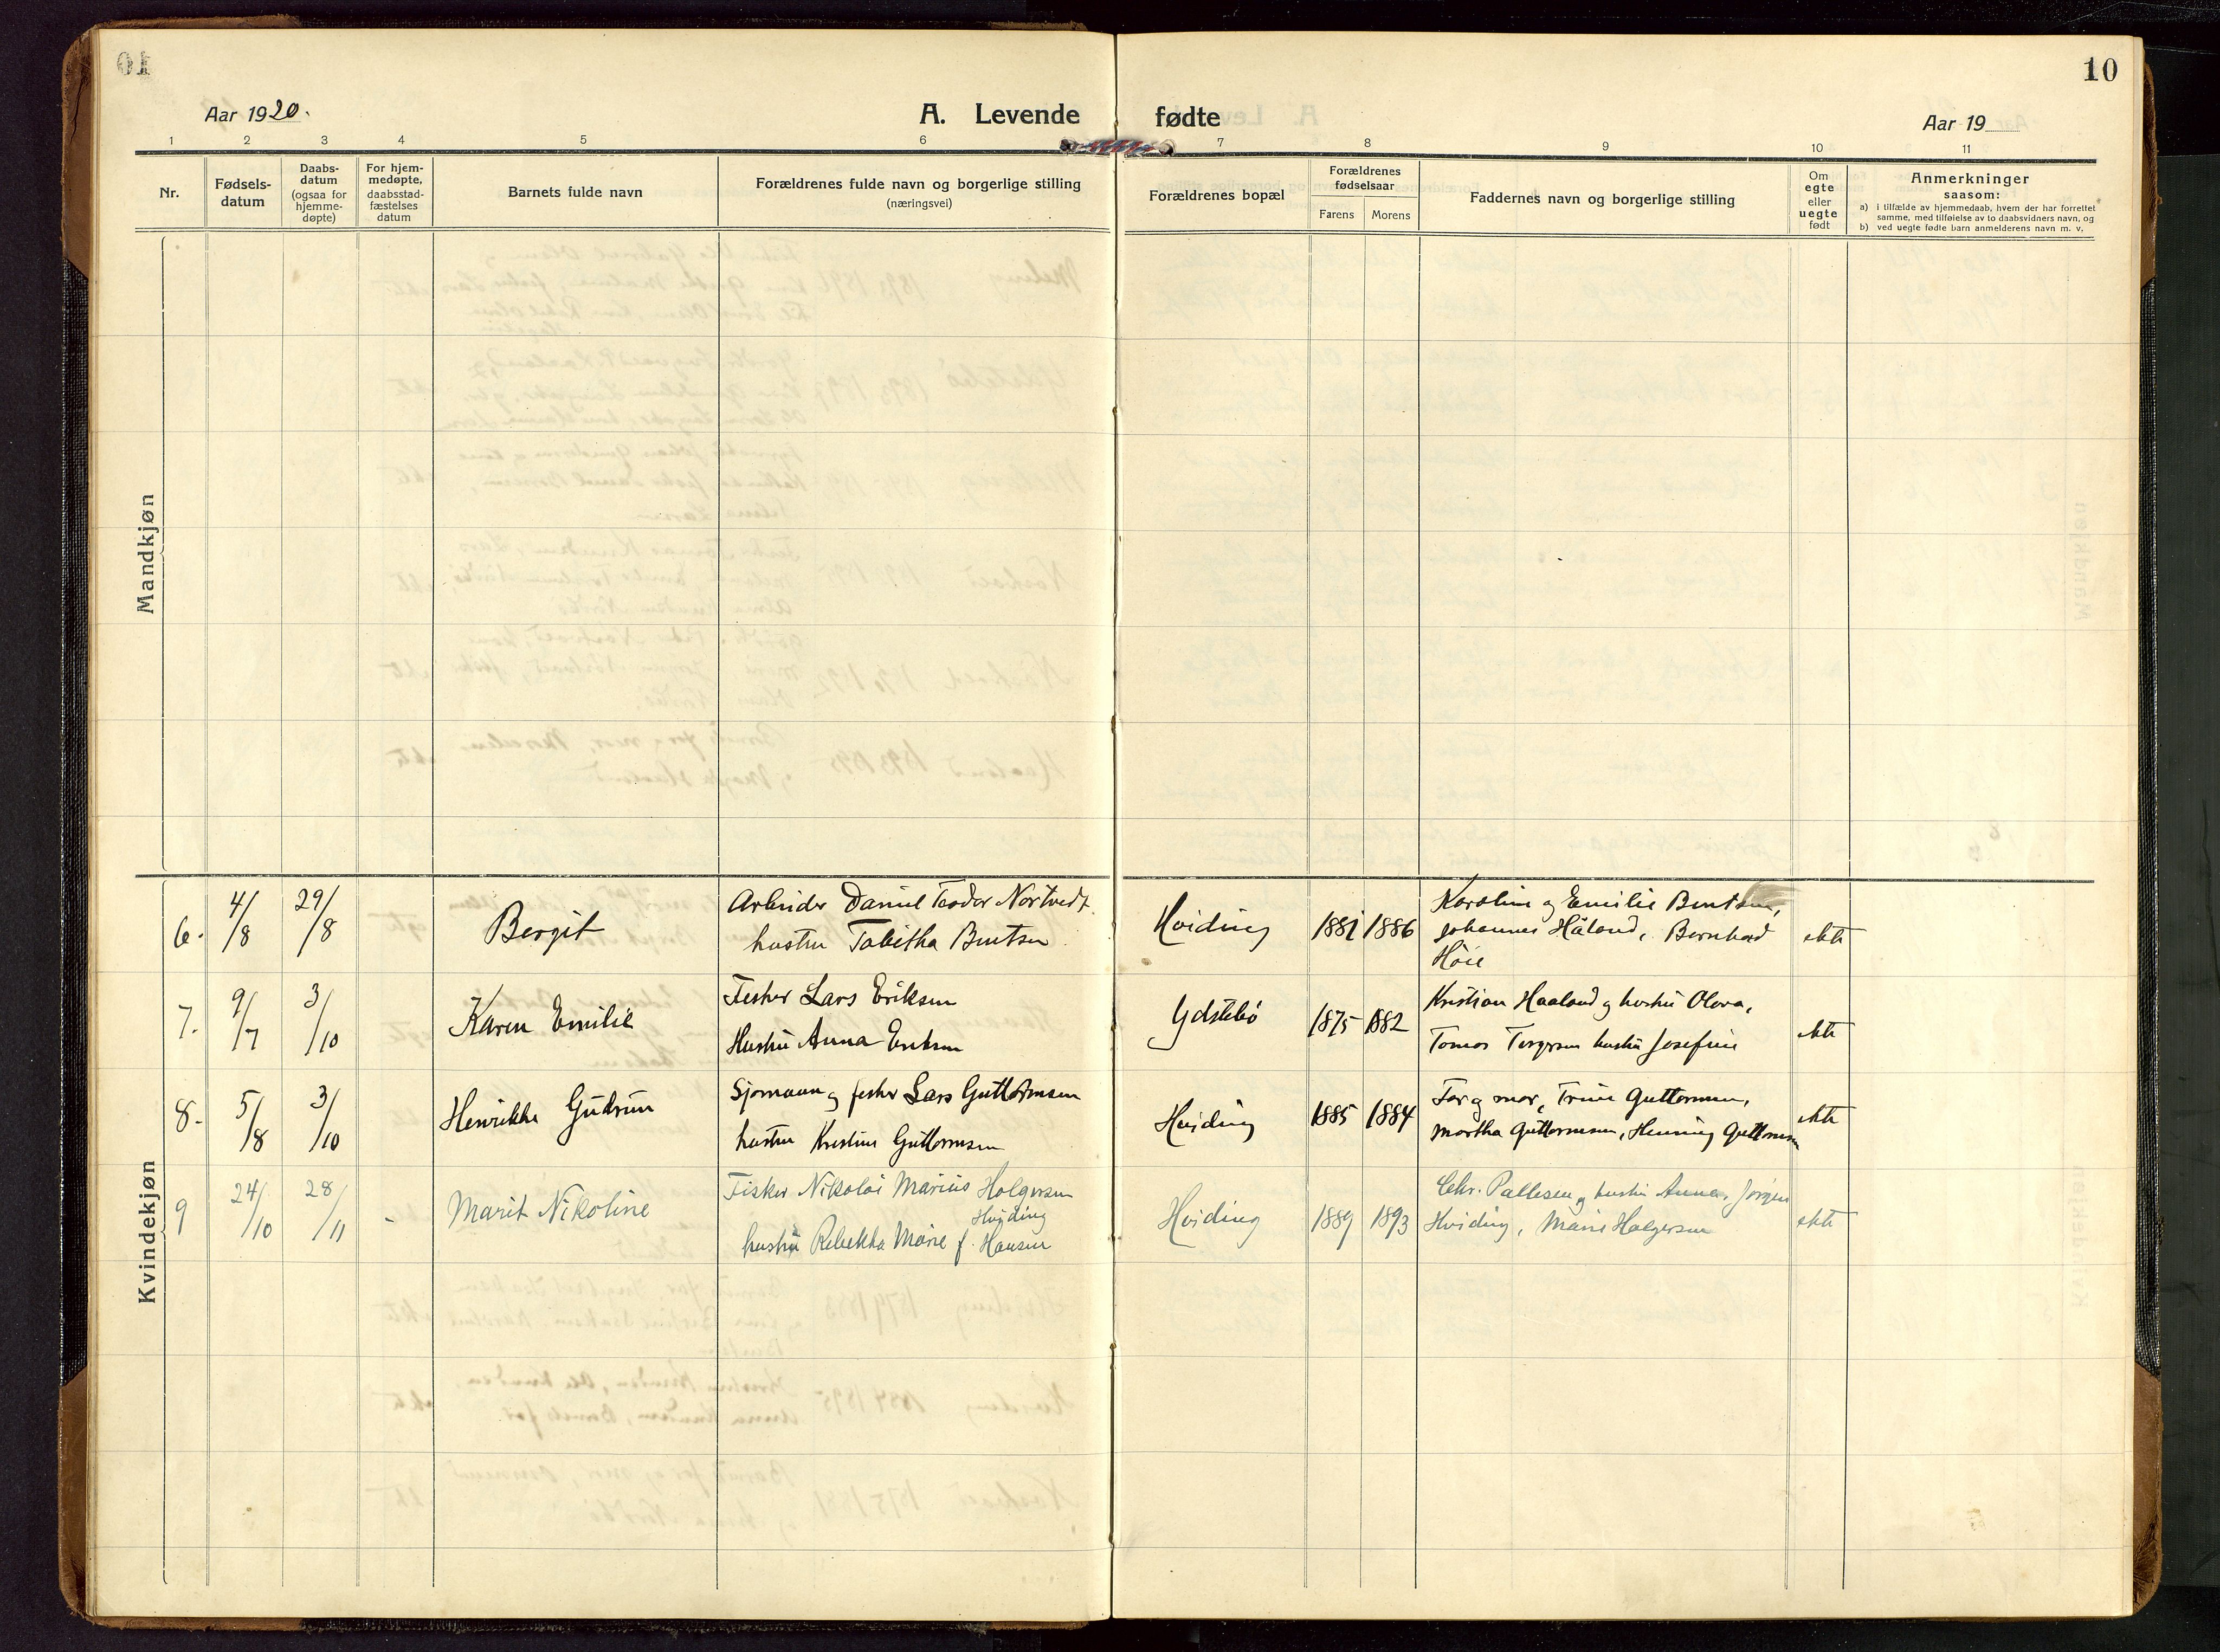 10
Aar 1920.
A. Levende fødte
Aar 19
1 2 3 4 5 6 7 8 9 10 11
Nr.
Fødsels-
datum
Daabs-
datum
(ogsaa for
hjemme-
døpte)
For hjem-
medøpte,
daabsstad-
fæstelses
datum
Barnets fulde navn
Forældrenes fulde navn og borgerlige stilling
(næringsvei)
Forældrenes bopæl
Forældrenes
fødselsaar
Farens Morens
Faddernes navn og borgerlige stilling
Om
egte
eller
uegte
født
Anmerkninger
saasom:
a) i tilfælde av hjemmedaab, hvem der har forrettet
samme, med tilføielse av to daabsvidners navn, og
b) ved uegte fødte barn anmelderens navn m. v.
Mandkjøn
Kvindekjøn
6. 4/8 29/8 Bergit
Arbeider Daniel Teodor Nortvedt
hustru Tabitha Bentsen
Hviding 1881 1886
Karoline og Emilie Bentsen,
Johannes Håland, Bernhard
Høie
ekte
7. 9/7 3/10 Karen Emilie
Fisker Lars Eriksen
Hustru Anna Eriksen
Ydstebø 1875 1882
Kristian Haaland og hustru Olava,
Tomas Torgersen hustru Josefine
ekte
8. 5/8 3/10 Henrikke Gudrun
Sjømann og fisker Lars Guttormsen
hustru Kristine Guttormsen
Hviding 1885 1884
Far og mor, Trine Guttormsen,
Martha Guttormsen, Henning Guttormsen
ekte
9 24/10 28/11 - Marit Nikoline
Fisker Nikolai Marius Holgersen
Hviding
hustru Rebekka Marie f. Hansen
Hviding 1889 1893
Chr. Pallesen og hustru Anna, Jørgen
Hviding, Marie Holgersen
ekte